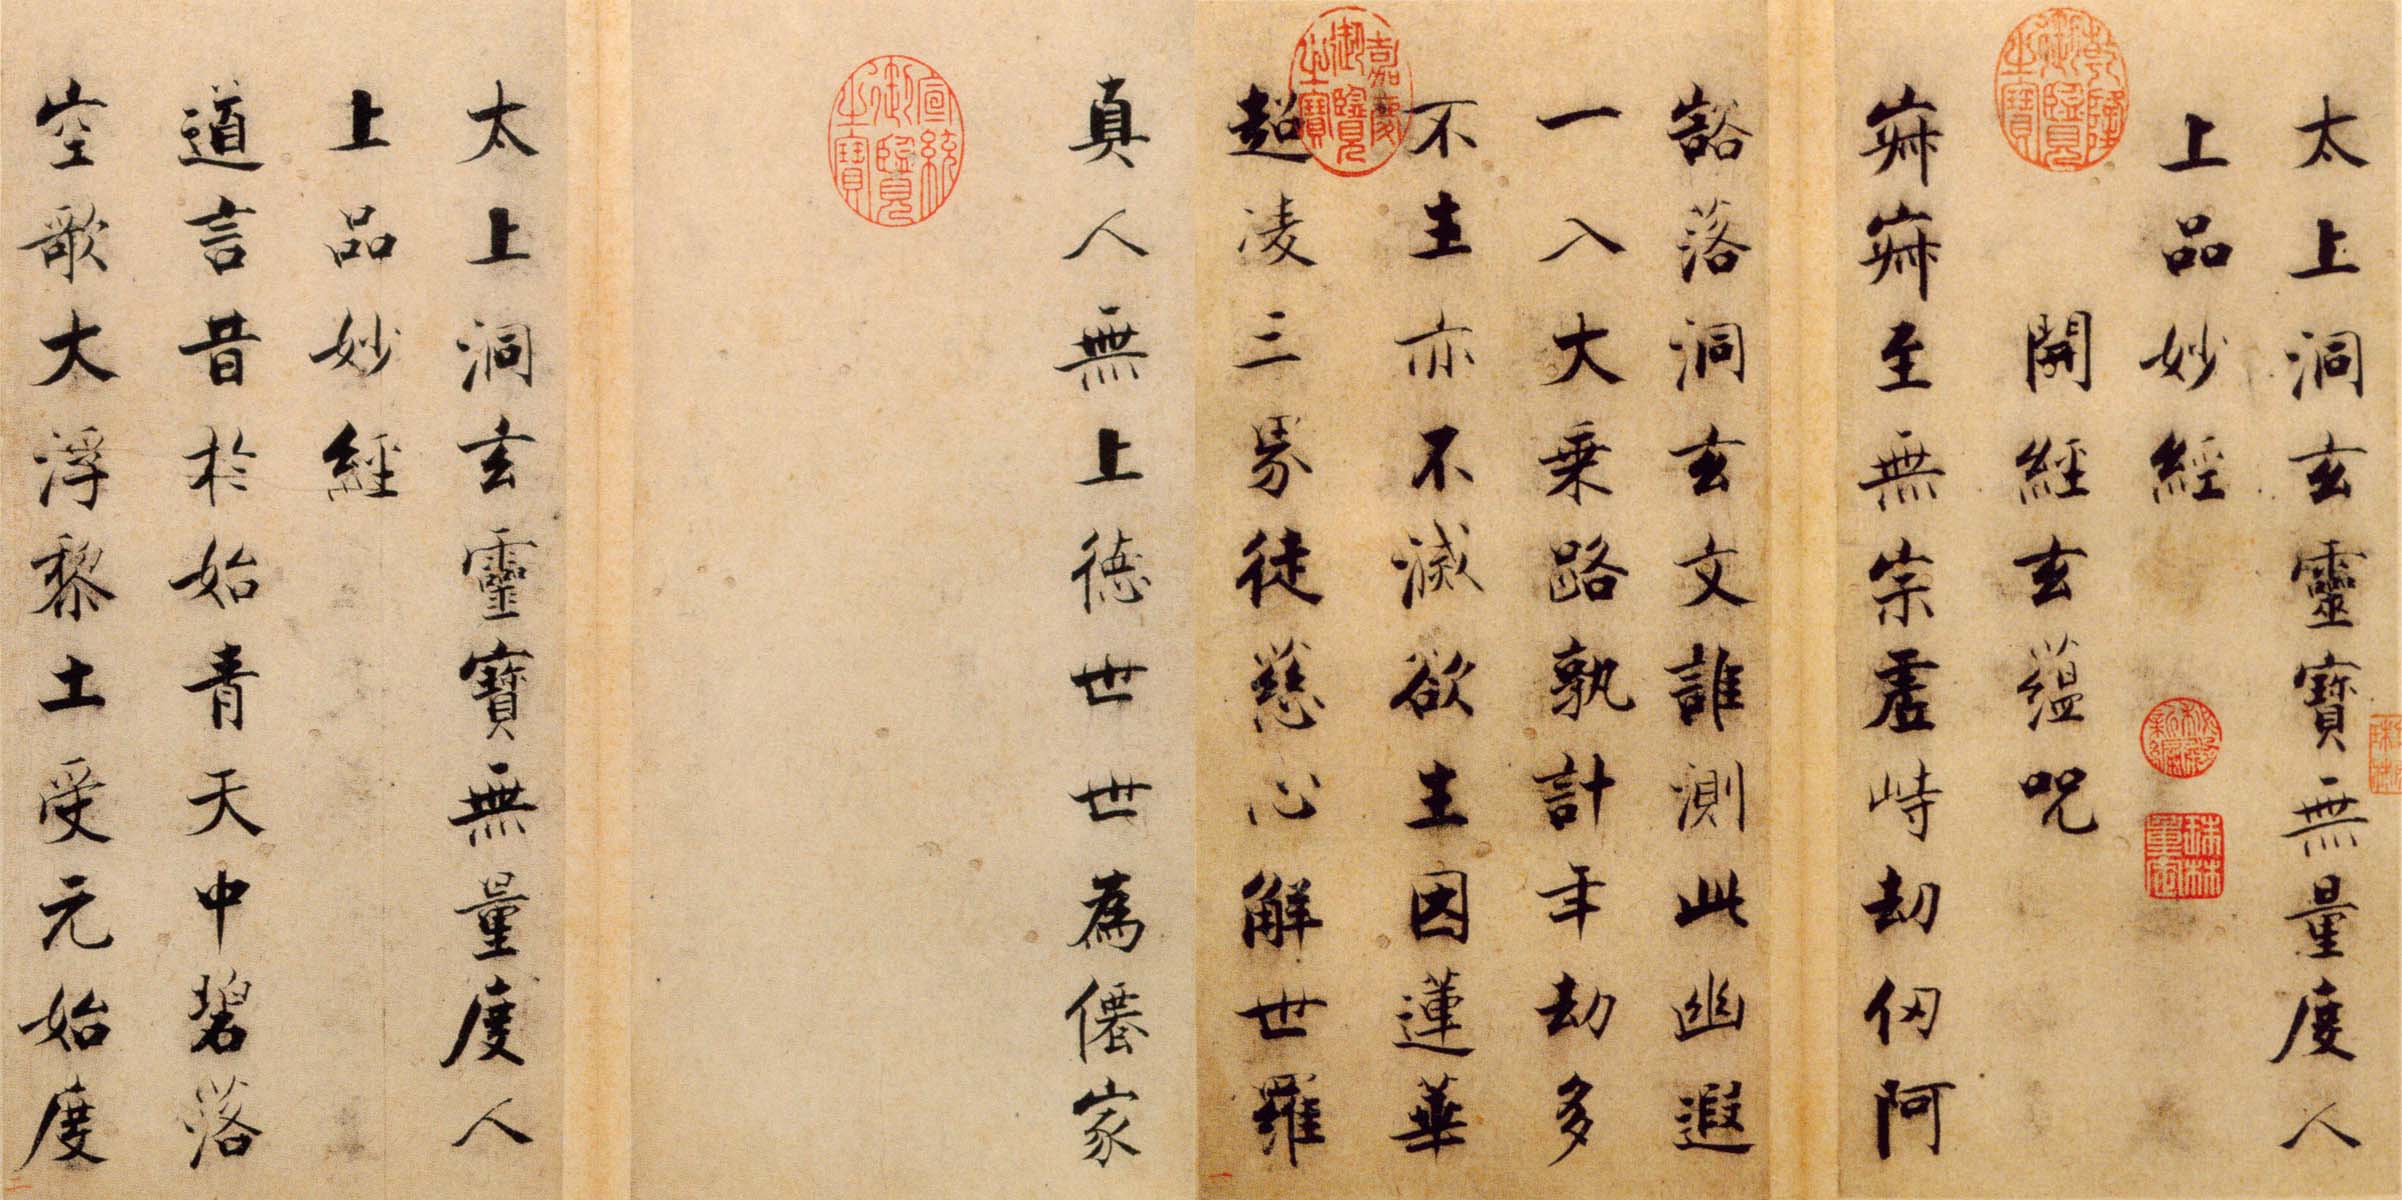 太上洞玄靈寶無量度人
上品妙經
開經玄蘊咒
寂寂至無宗虛峙劫仞阿
豁落洞玄文誰測此幽遐
一入大乘路孰計年劫多
不生亦不滅欲生因蓮華
超淩三界徒慈心解世羅
真人無上德世世為僊家
太上洞玄靈寶無量度人
上品妙經
道言昔於始青天中碧落
空歌大浮黎土受元始度
乾隆御覽之寶
嘉慶御覽之寶
宣統御覽之寶
一
二